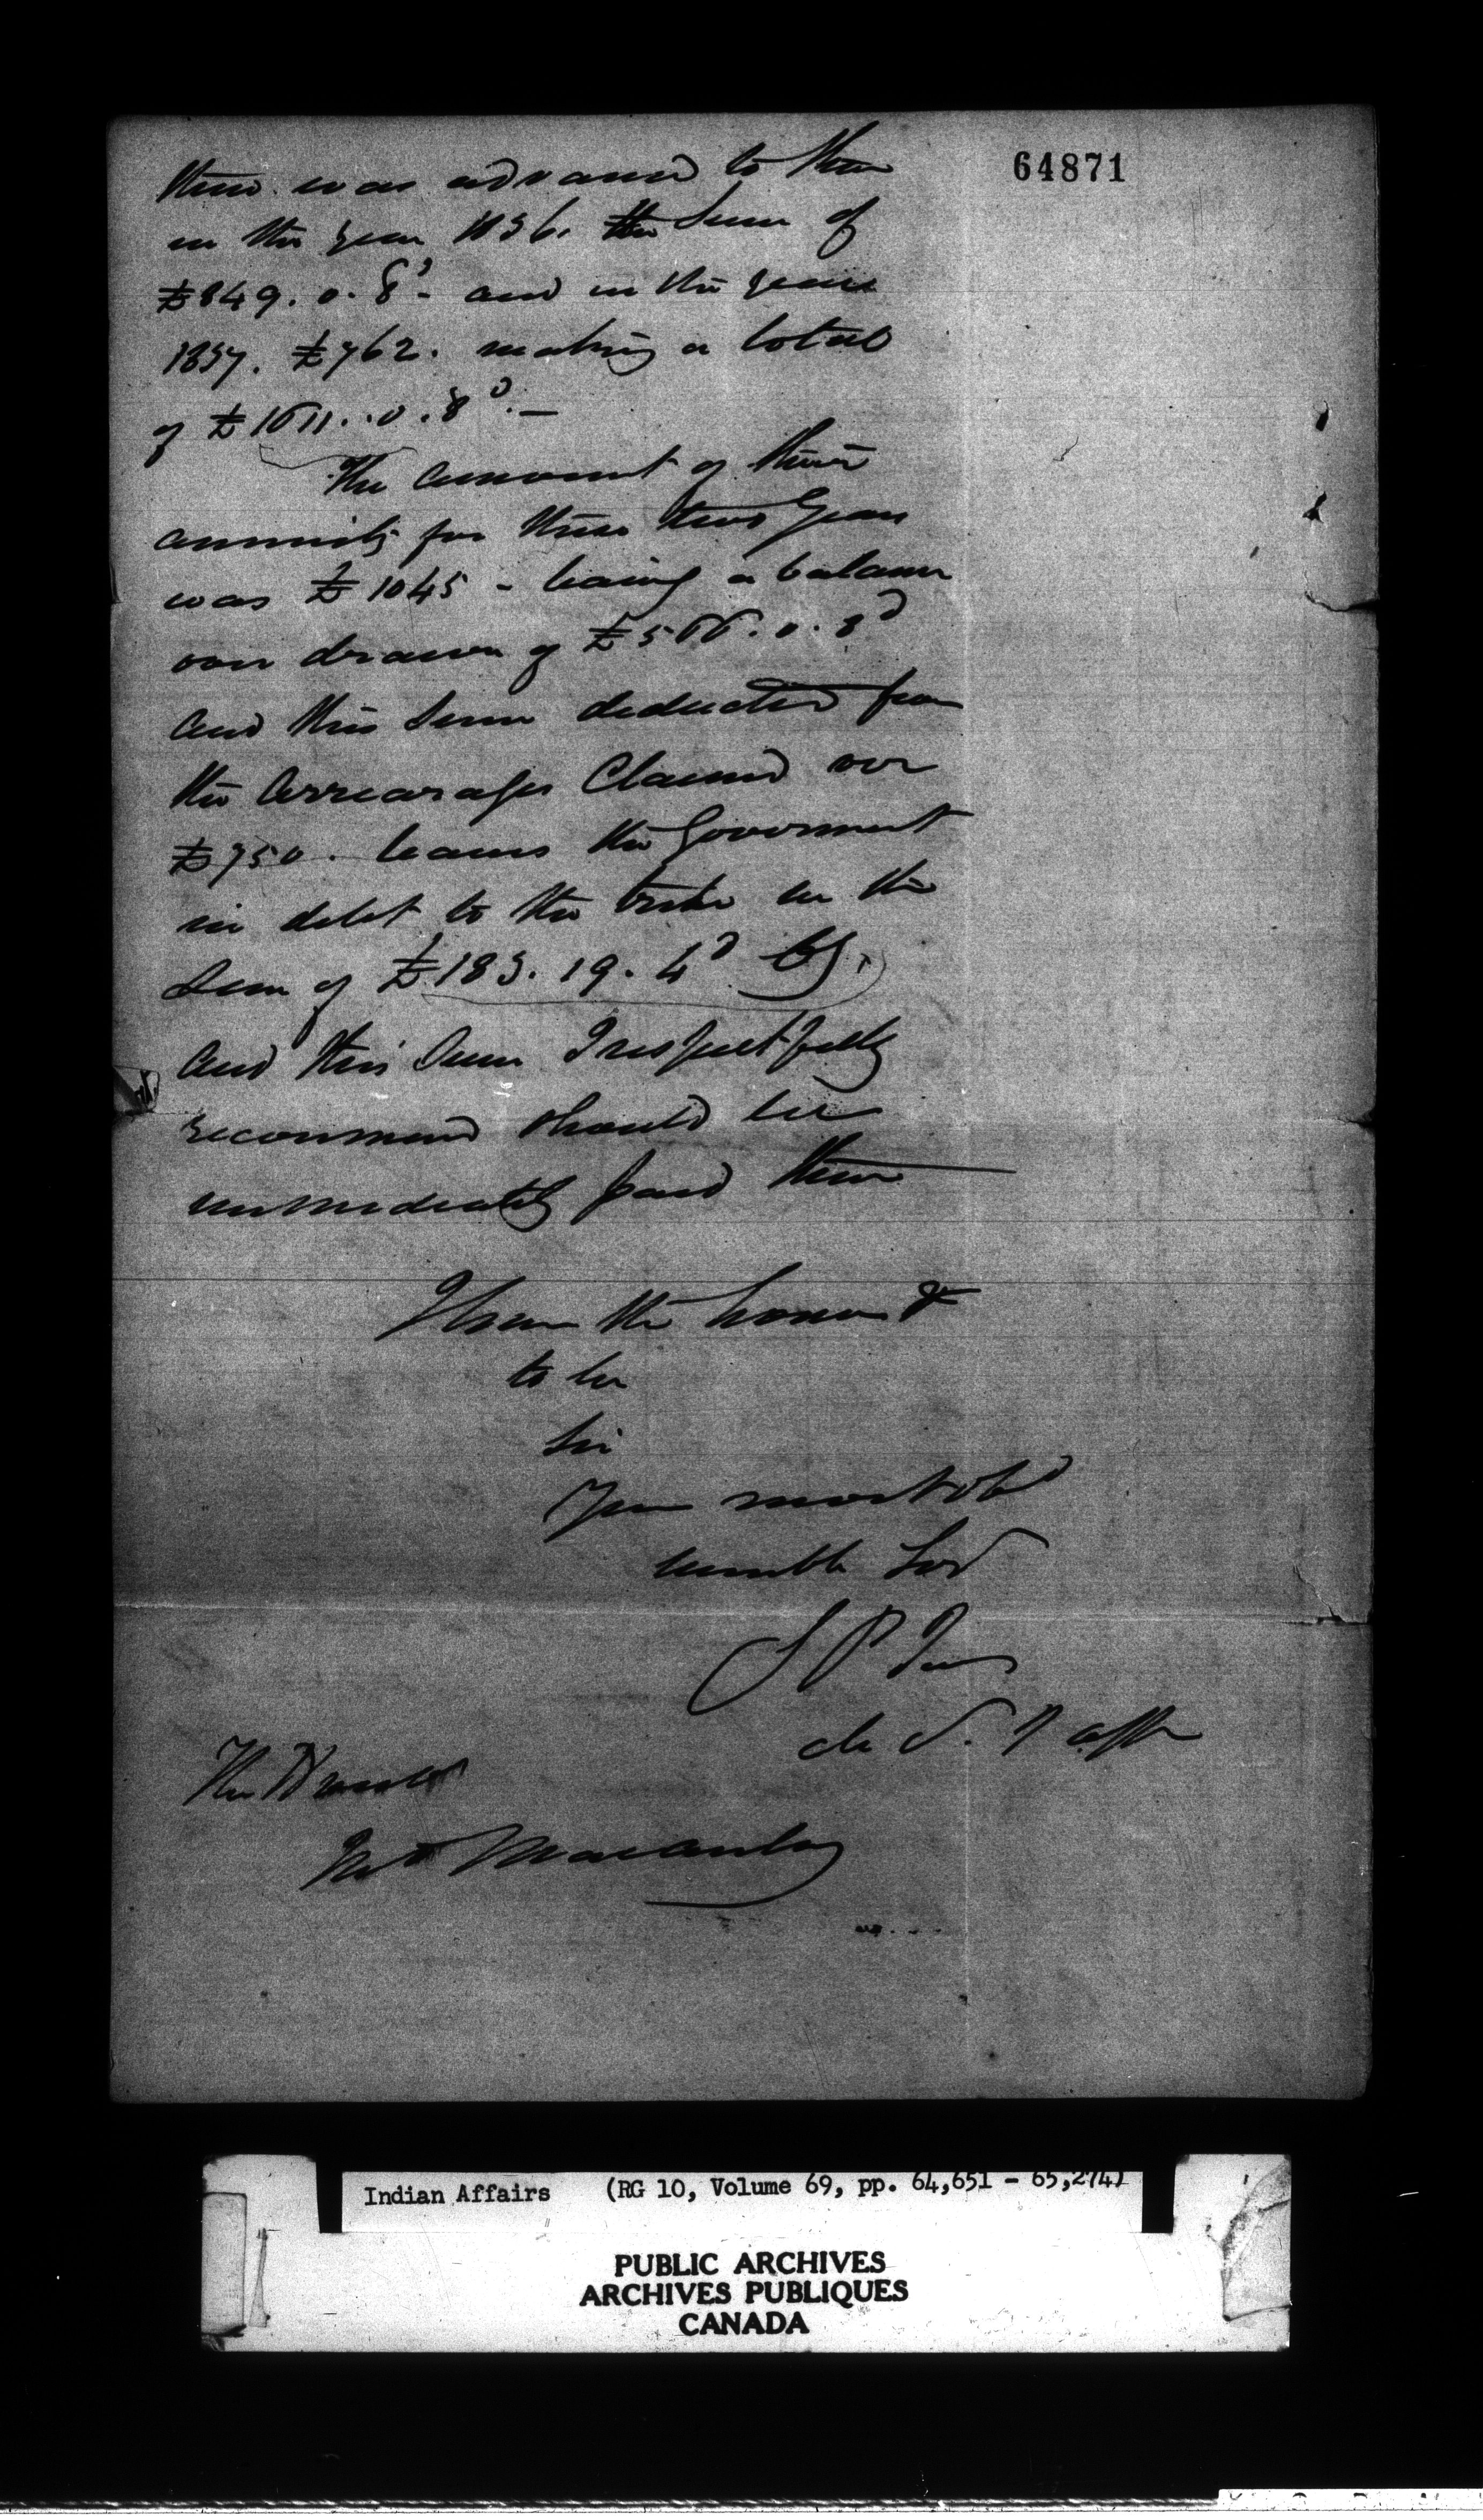 64871
there was advanced to them
in the year 1836. the Sum of
£849. 0. 8d - and in the year
1837. £762. making a total
of £1611. . 0. 8d. —
The amount of their
annuity for these two Years
was £1045 - leaving a balance
over drawn of £566. 0. 8d
and this Sum deducted from
the Arrearages Claimed over
£750. leaves the Government
in debt to the tribe in the
Sum of £183. 19. 4d
and this Sum I respectfully
recommend should be
immediately paid them
I have the honor
to be
Sir
Your most obt
humble Svt
S P Jarvis
The Honble
Jno Macaulay
Indian Affairs (RG 10, Volume 69, pp. 64,651 - 65,274)
PUBLIC ARCHIVES
ARCHIVES PUBLIQUES
CANADA